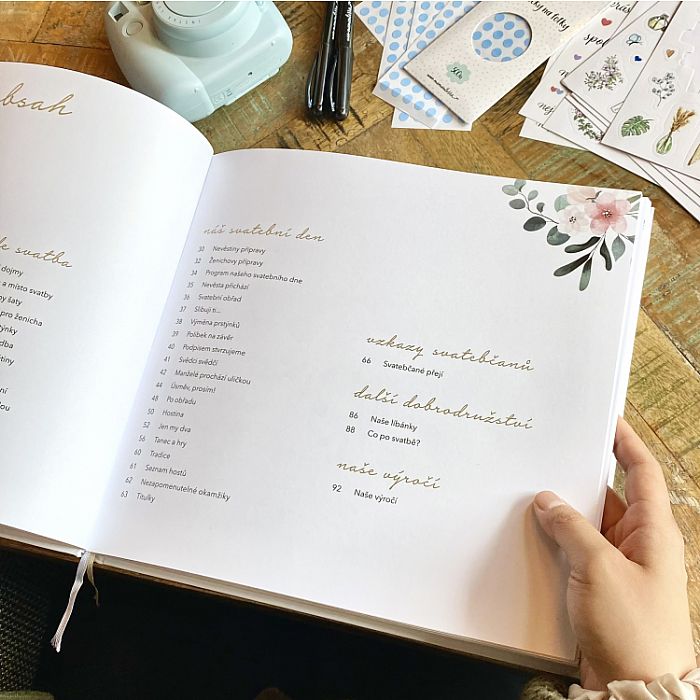 obsah
svatba
dojmy
a místo svatby
šaty
pro ženicha
náš svatební den
30 Nevěstiny přípravy
32 Ženichovy přípravy
34 Program našeho svatebního dne
35 Nevěsta přichází
36 Svatební obřad
37 Slibuji ti...
38 Výměna prstýnků
39 Polibek na závěr
40 Podpisem stvrzujeme
41 Svědci svědčí
42 Manželé prochází uličkou
44 Úsměv, prosím!
48 Po obřadu
50 Hostina
52 Jen my dva
56 Tanec a hry
60 Tradice
61 Seznam hostů
62 Nezapomenutelné okamžiky
63 Titulky
vzkazy svatebčanů
66 Svatebčané přejí
další dobrodružství
86 Naše líbánky
88 Co po svatbě?
naše výročí
92 Naše výročí